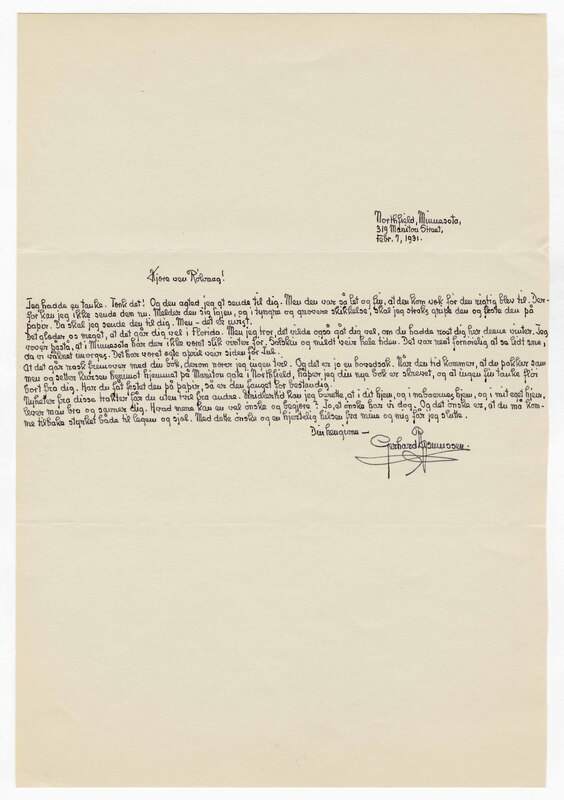 Northfield, Minnesota,
319 Manitou Street,
Febr. 7, 1931.
Kjære ven Rölvaag!
Jeg hadde en tanke. Tenk det! Og den agted jeg at sende til dig. Men den var så let og fin, at den kom vek før den rigtig blev til. Der-
for kan jeg ikke sende den nu. Melder den sig igjen, og i tyngre og grovere skikkelse, skal jeg straks gripe den og feste den på
papir. Da skal jeg sende den til dig. Men – det er visst.
Det gleder os meget, at det går dig vel i Florida. Men jeg tror, det vilde også gåt dig vel, om du hadde vært dig her denne vinter. Jeg
våger påstå, at i Minnesota har der ikke vært slik vinter før. Solskin og mildt veir hele tiden. Det var rent fornöielig at se lidt sne,
da vi våknet imorges. Det har vært egte april veir siden før Jul.
At det går raskt fremover med din bok, derom nærer jeg ingen tvil. Og det er jo hovedsak. Når den tid kommer, at du pakker sam-
men og setter kursen hemmot hjemmet på Manitou gate i Northfield, håper jeg din nye bok er skrevet, og at ingen fin tanke fløi
bort fra dig. Har du fåt festet den på papir, så er den fanget for bestandig.
Nyheter fra disse trakter får du uten tvil fra andre. Imidlertid kan jeg berette, at i dit hjem, og i naboernes hjem, og i mit eget hjem,
lever man bra og savner dig. Hvad mere kan en vel önske og begjære? Jo, et önske har vi dog. Og det önske er, at du må kom-
me tilbake styrket både til legeme og sjel. Med dette önske og en hjertelig hilsen fra mine og mig får jeg slutte.
Din hengivne –
Gerhard Rasmussen.